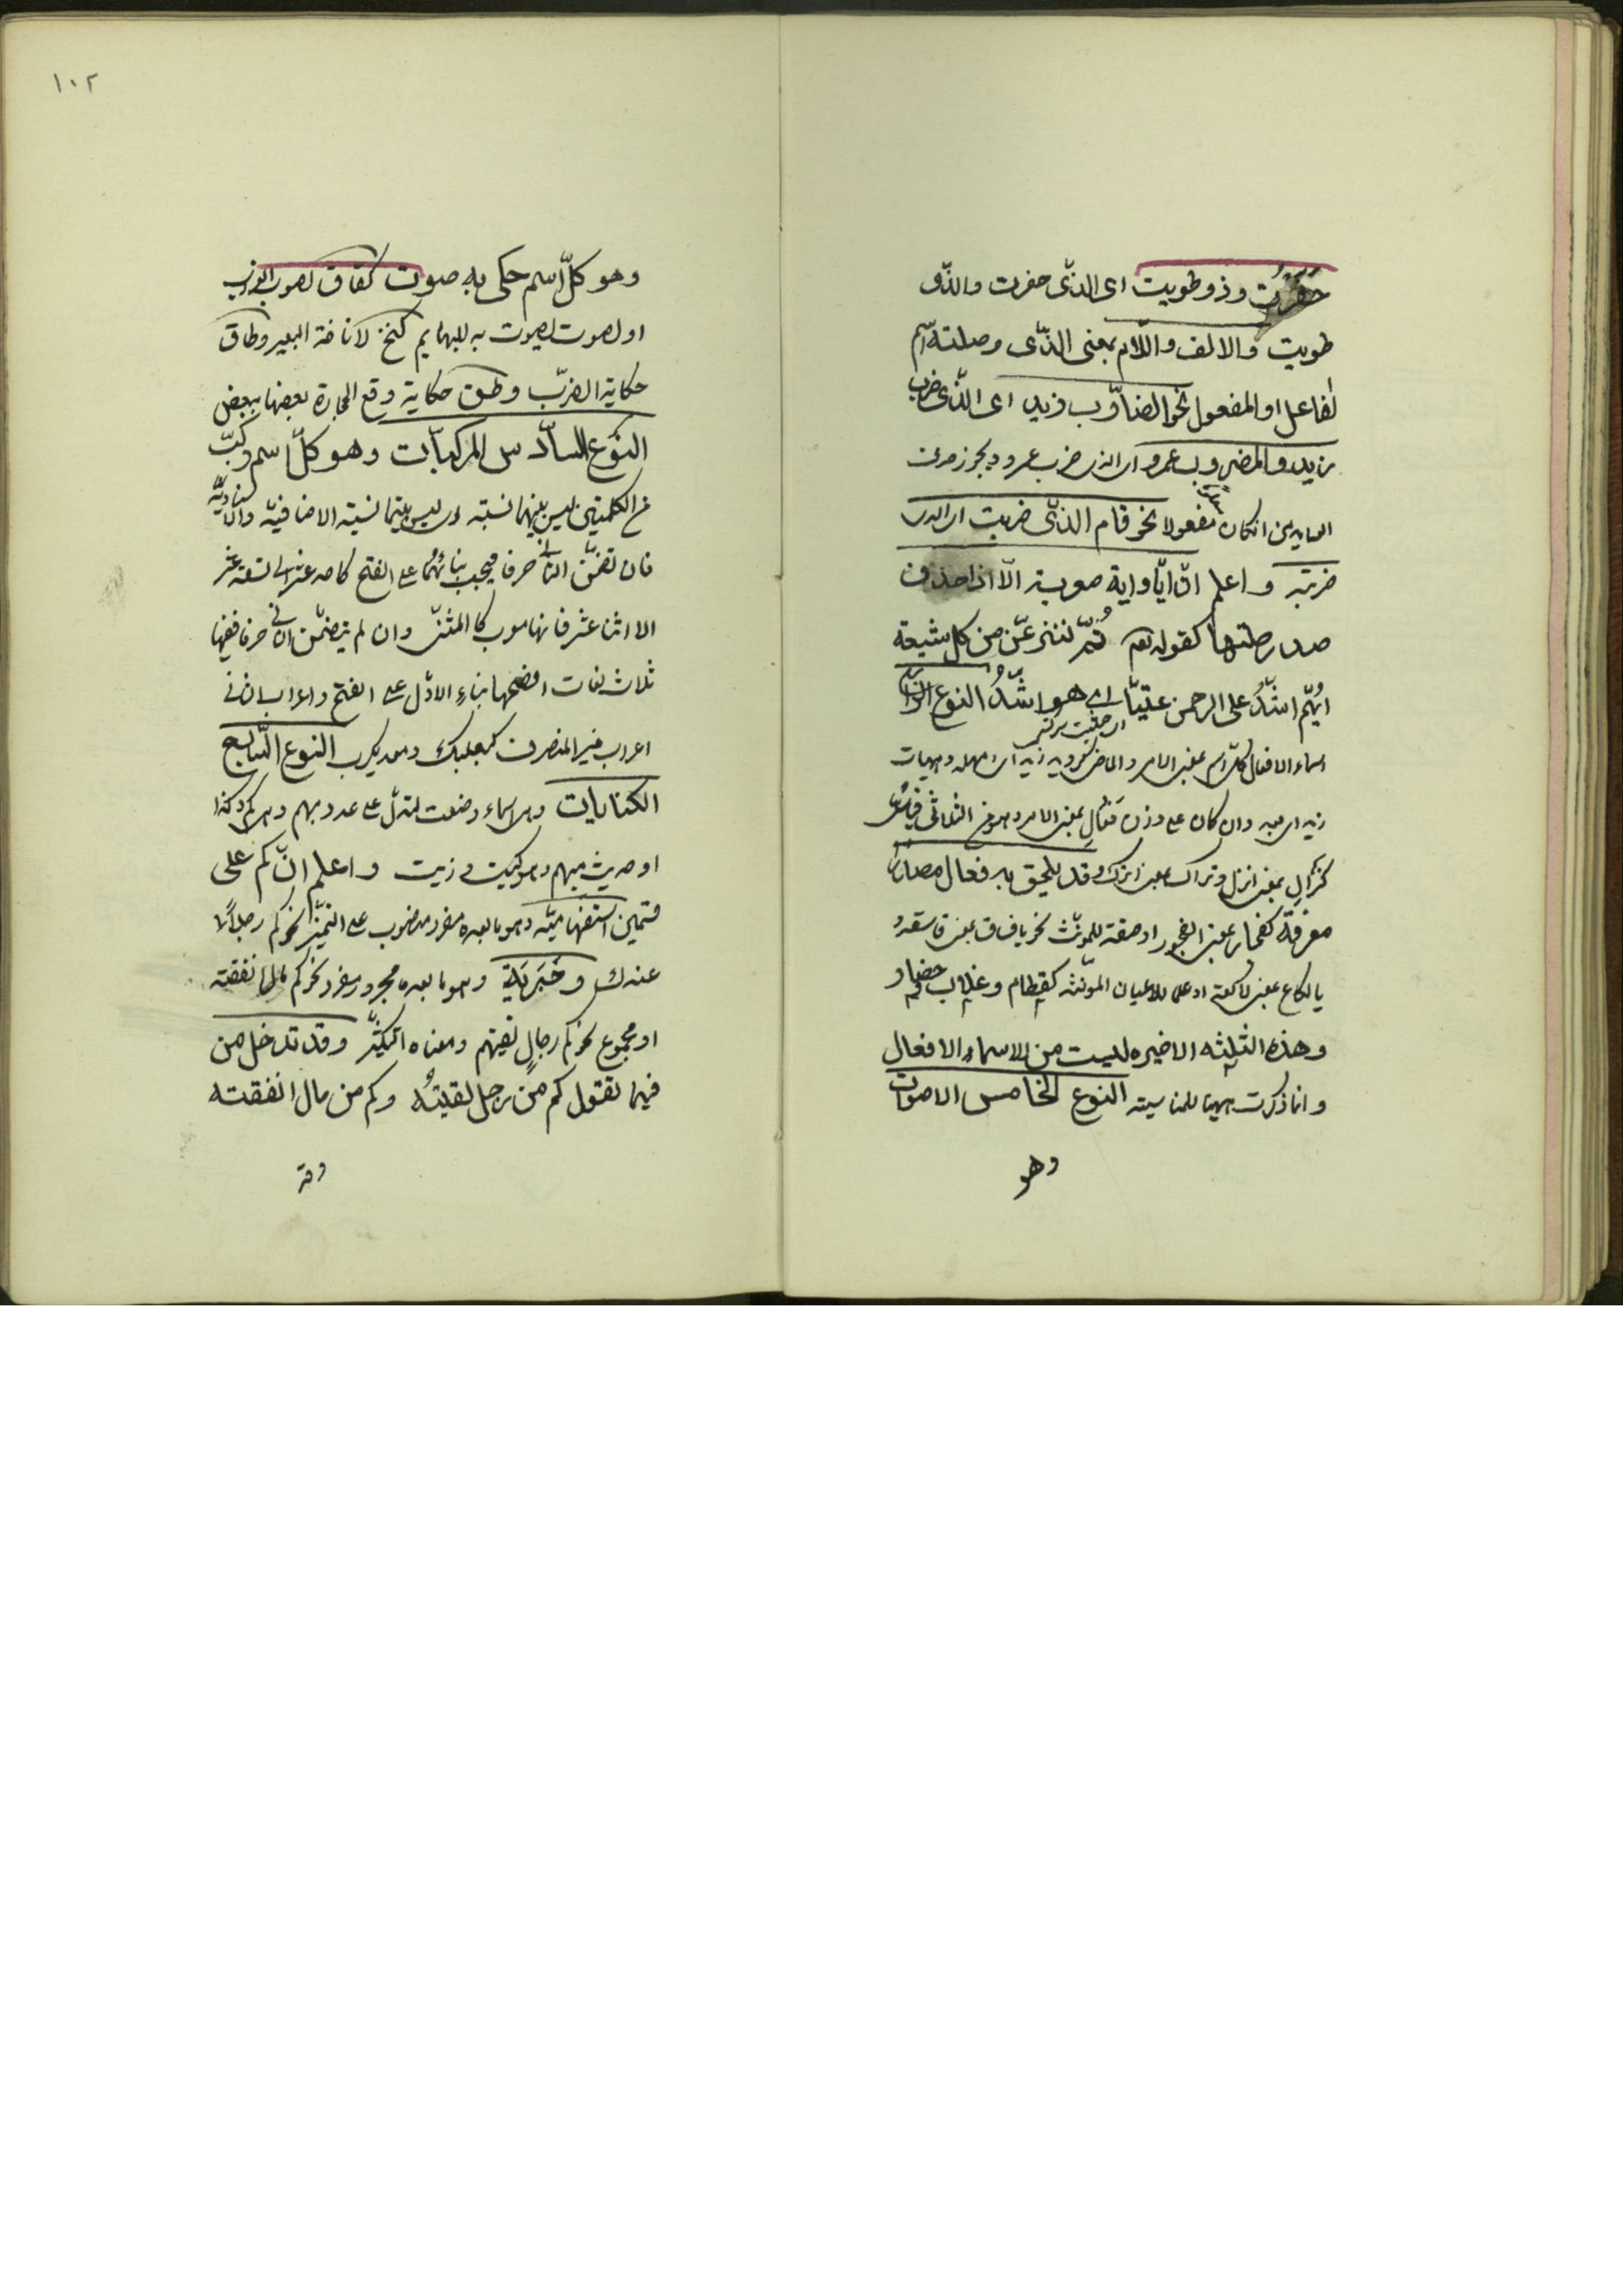 حفرت وذو طويت اى الذى حفرت والذى
طويت والالف واللام بمعنى الذى وصلته اسم
لفاعل او المفعول نحو الضارب زيد اى الذى ضرب
زيد والمضروب عمرو اى الذى ضرب عمرو ويجوز حذف
العايد من ان كان مفعولا نحو قام الذى ضربت اى الذى
ضربته واعلم ان ايا واية معربة الا اذا حذف
صدر صلتها كقوله تعم ثم لننزعن من كل شيعة
ايهم اشد على الرحمن عتيا اى هو اشد النوع الرابع
اسماء الافعال كل اسم بمعنى الامر والماضى كرويد زيد اى امهله وهيهات
زيد اى بعد وان كان على وزن فعال بمعنى الامر وهو من الثلاثى قياس
كنزال بمعنى انزل وتراك بمعنى اترك وقد يلحق به فعال مصدرا
معرفة كفجار بمعنى الفجور او صفة للمونث نحو يا فساق بمعنى فاسقة و
يا لكاع بمعنى لاكعة او علم للاعيان المونثه كقطام وغلاب وحضار
وهذه الثلثه الاخيره ليست من الاسماء الافعال
وانما ذكرت ههنا للمناسبته النوع الخامس الاصوات
وهو
١٠٢
وهو كل اسم حكى به صوت كغاق لصوت الغراب
او لصوت يصوت به للبهايم كنخ لاناخة البعير وطاق
حكاية الضرب وطق حكاية وقع الحجارة بعضها ببعض
النوع السادس المركبات وهو كل اسم ركب
من الكلمتين ليس بينهما نسبته اى ليس بينهما نسبته الاضافيه والاسناديه
فان تضمن الثانى حرفا فيجب بنائهما على الفتح كاحد عشر الى تسعة عشر
الا اثنا عشر فانها معرب كالمثنى وان لم يتضمن الثانى حرفا ففيها
ثلاث لغات افصحها بناء الاول على الفتح واعراب الثانى
اعراب غير المنصرف كبعلبك ومعديكرب النوع السابع
الكنايات وهى اسماء وضعت لتدل على عدد مبهم وهى كم وكذا
او حديث مبهم وهو كيت وذيت واعلم ان كم على
قسمين استفهاميته وهو ما بعده مفرد منصوب على التميز نحو كم رجلا
عندك وخبرية وهو ما بعده مجرور مفرد نحو كم مال انفقته
او مجموع نحو كم رجال لقيتهم ومعناه التكثير وقد تدخل من
فيهما تقول كم من رجل لقيته وكم من مال انفقته